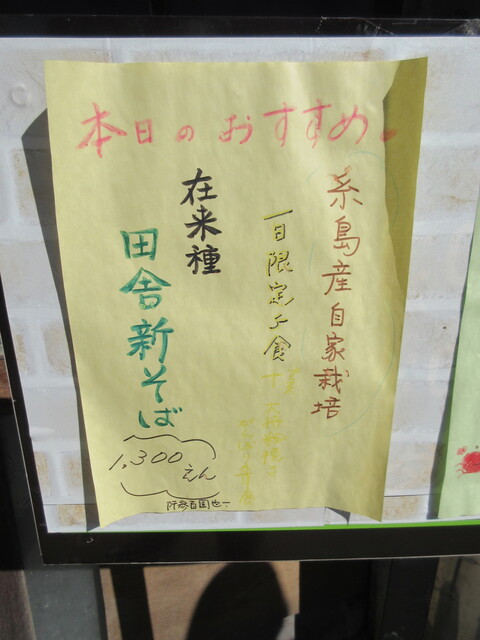 本日のおすすめ。
糸島産自家栽培
一日限定5食
在来種
田舎新そば
1,300えん